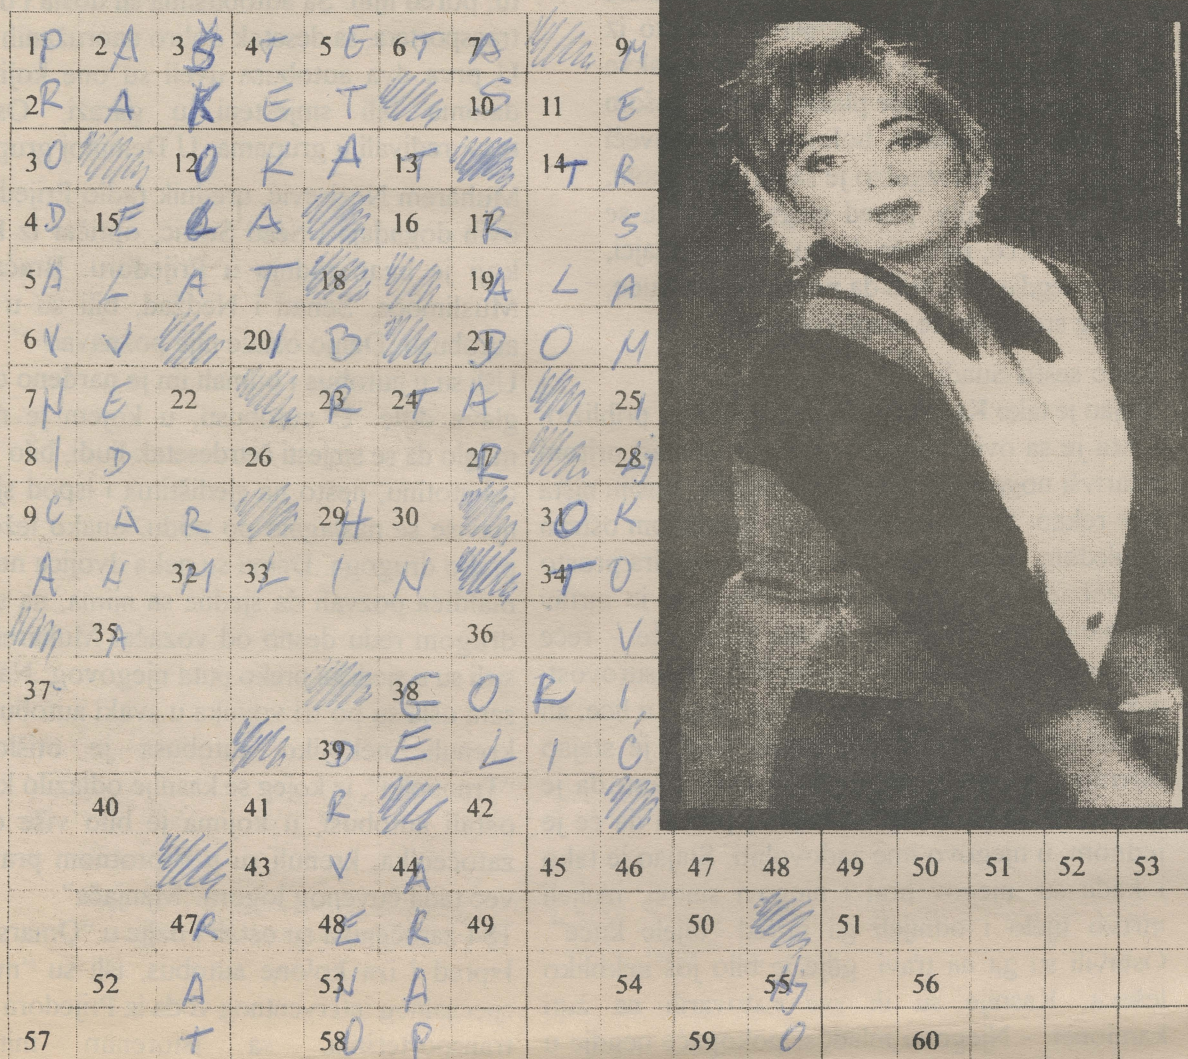 1 P 2 A 3 Š 4 T 5 E 6 T 7 A 9 M
2 R A K E T 10 S 11 E
3 O 12 O K A 13 T 14 T R
4 D 15 E L A 16 17 R S
5 A L A T 18 19 A L A
6 V V 20 I B 21 D O M
7 N E 22 23 R 24 T A 25 I
8 I D 26 27 R 28 Lj
9 C A R 29 H 30 31 O K
A N 32 M 33 L I N 34 T O
35 A 36 V
37 38 G O R I
39 D E L I C
40 41 R 42
43 V 44 A 45 46 47 48 49 50 51 52 53
47 R 48 E R 49 50 51
52 A 53 N A 54 55 Nj 56
57 T 58 O P 59 O 60